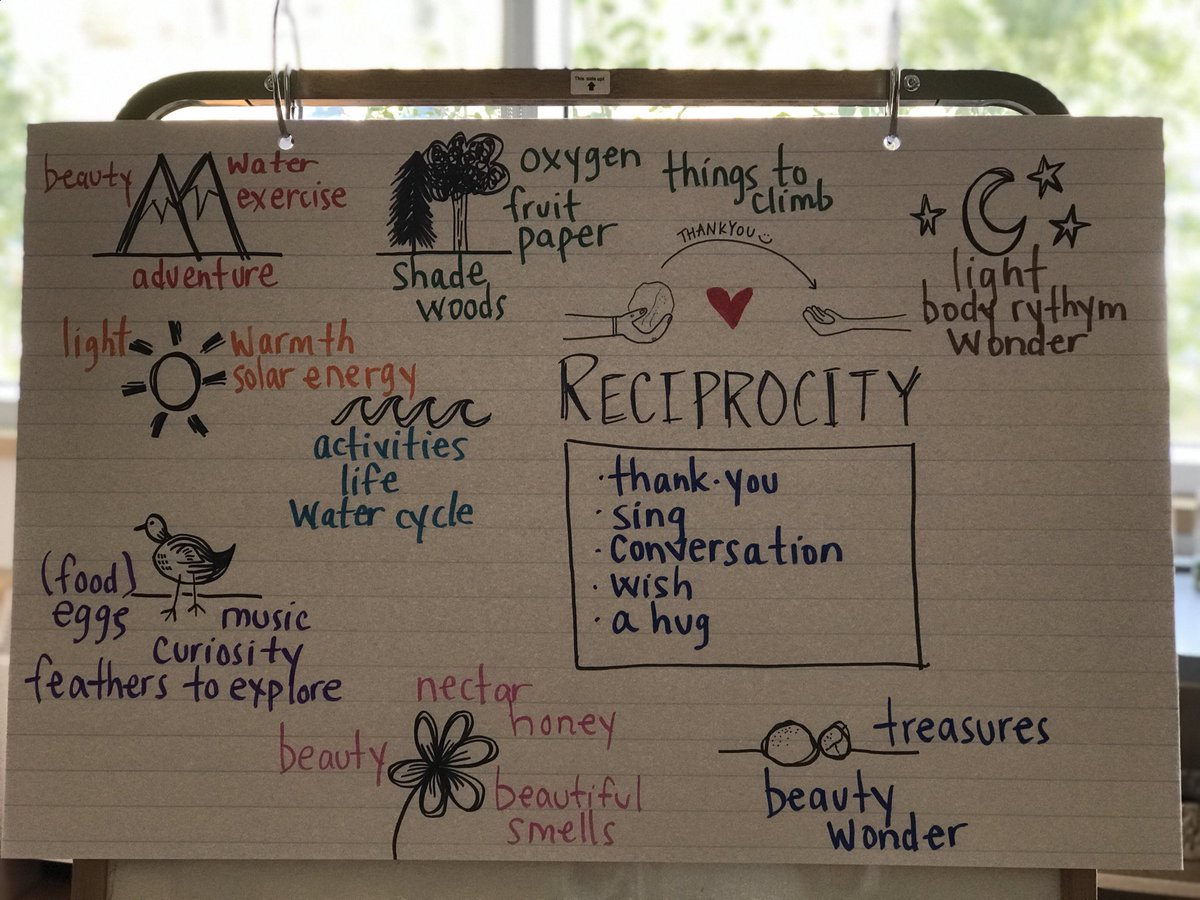 This side up!
beauty
water
exercise
adventure
oxygen
fruit
paper
shade
woods
things to
climb
THANKYOU
light
body rythym
wonder
light
warmth
solar energy
activities
life
water cycle
RECIPROCITY
· thank·you
· sing
· conversation
· wish
· a hug
(food)
eggs
music
curiosity
feathers to explore
nectar
honey
beauty
beautiful
smells
treasures
beauty
wonder